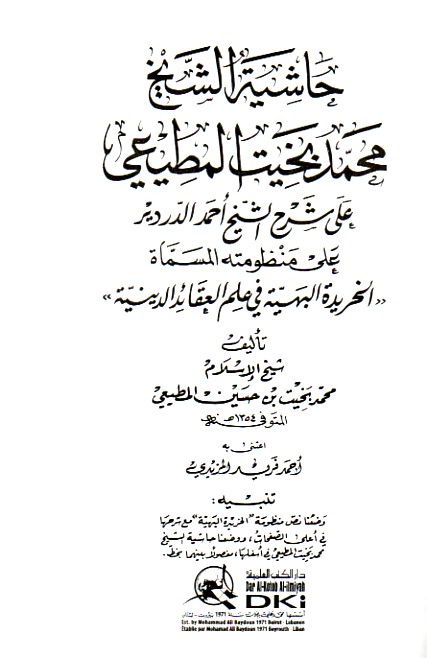 حاشية الشيخ
محمد بخيت المطيعي
على شرح الشيخ أحمد الدردير
على منظومته المسماة
«الخريدة البهية في علم العقائد الدينية»
تأليف
شيخ الإسلام
محمد بخيت بن حسين المطيعي
المتوفى ١٣٥٤ هـ
اعتنى به
أحمد فريد المزيدي
تنبيه:
وضعنا نص منظومة "الخريدة البهية" مع شرحها
في أعلى الصفحات، ووضعنا حاشية الشيخ
محمد بخيت المطيعي في أسفلها، مفصولا بينهما بخط.
دار الكتب العلمية
Dar Al-Kotob Al-ilmiyah
DKi
أسسها محمد علي بيضون سنة 1971 بيروت - لبنان
Est. by Mohammad Ali Baydoun 1971 Beirut - Lebanon
Établie par Mohamad Ali Baydoun 1971 Beyrouth - Liban